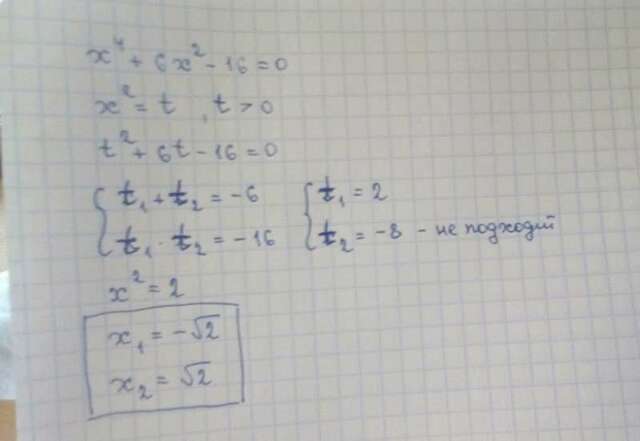 x⁴ + 6x² - 16 = 0
x² = t , t > 0
t² + 6t - 16 = 0
{ t₁ + t₂ = -6 { t₁ = 2
{ t₁ · t₂ = -16 { t₂ = -8 - не подходит
x² = 2
x₁ = -√2
x₂ = √2